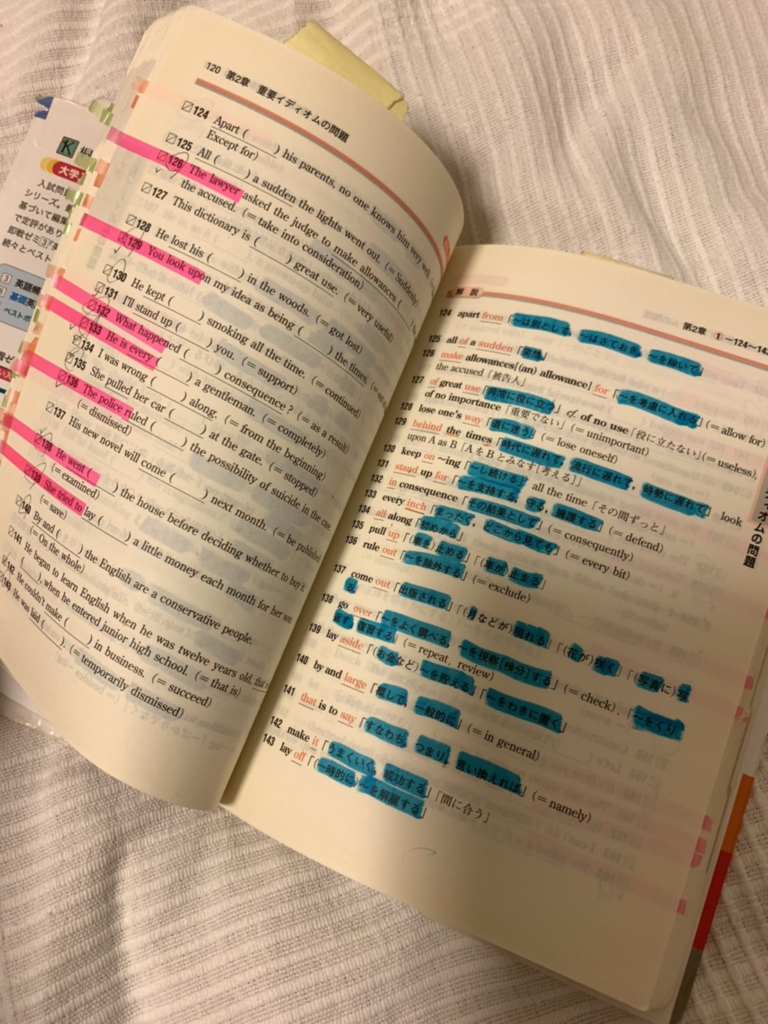 120 第2章 重要イディオムの問題
124 Apart ( ) his parents, no one knows him very well.
Except for)
125 All ( ) a sudden the lights went out. (= Suddenly)
126 The lawyer asked the judge to make allowances (
the accused. (= take into consideration)
127 This dictionary is ( ) great use. (= very useful)
128 He lost his ( ) in the woods. (= got lost)
129 You look upon my idea as being ( ) the times.
130 He kept ( ) smoking all the time. (= continued)
131 I'll stand up ( ) you. (= support)
132 What happened ( ) consequence? (= as a result)
133 He is every ( ) a gentleman. (= completely)
134 I was wrong ( ) along. (= from the beginning)
135 She pulled her car ( ) at the gate. (= stopped)
136 The police ruled ( ) the possibility of suicide in the case
(= dismissed)
137 His new novel will come ( ) next month. (= be published)
138 He went ( ) the house before deciding whether to buy it
(= examined)
139 She tried to lay ( ) a little money each month for her son.
(= save)
140 By and ( ) the English are a conservative people.
(= On the whole)
141 He began to learn English when he was twelve years old, that is
( ), when he entered junior high school. (= that is)
142 He couldn't make ( ) in business. (= succeed)
143 He was laid ( ). (= temporarily dismissed)
解説
第2章 1 −124〜143
124 apart from「〜は別として, 〜はさておき, 〜を除いて」
125 all of a sudden「突然」
126 make allowances[(an) allowance] for「〜を考慮に入れる」(= allow for)
the accused「被告人」
127 of great use「非常に役に立つ」 cf. of no use「役に立たない」(= useless)
of no importance「重要でない」(= unimportant)
128 lose one's way「道に迷う」(= lose oneself)
129 behind the times「時代に遅れて, 流行に遅れて, 時勢に遅れて」 look
upon A as B「AをBとみなす[考える]」
130 keep on 〜ing「〜し続ける」 all the time「その間ずっと」
131 stand up for「〜を支持する, 擁護する」(= defend)
132 in consequence「その結果として」(= consequently)
133 every inch「まったく, どこから見ても」(= every bit)
134 all along「初めから」
135 pull up「(車を)止める」「(車が)止まる」
136 rule out「〜を除外する」(= exclude)
137 come out「出版される」「(月などが)現れる」「(花が)咲く」「(写真に)写
る」
138 go over「〜をよく調べる, 〜を視察[検分]する」(= check),「〜をくり
返す, 復習する」(= repeat, review)
139 lay aside「(お金など)〜を貯える」「〜をわきに置く」
140 by and large「概して, 一般的に」(= in general)
141 that is to say「すなわち, つまり, 言い換えれば」(= namely)
142 make it「うまくいく, 成功する」「間に合う」
143 lay off「(一時的に)〜を解雇する」
イディオムの問題
K
大学
入試問
シリーズ。
基づいて編集
で定評があり
即戦ゼミ③
続々とベスト
③ 英語頻
④ 基礎英
ベスト